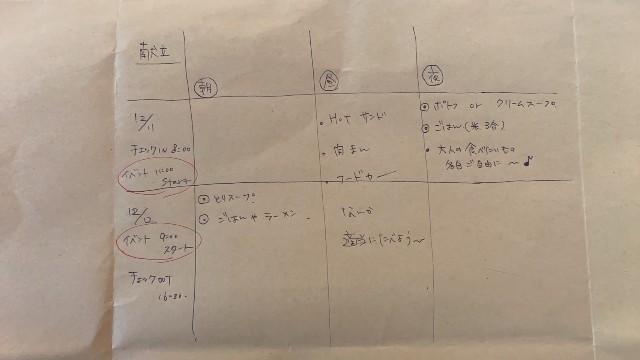 献立
朝
昼
夜
12/11
チェックIN 8:00
イベント 11:00
Start
・HOT サンド
・肉まん
・フードカー
◉ ポトフ or クリームスープ。
◉ ごはん(米 3合)
・大人の食べたいもの
各自ご自由に 〜♪
12/12
イベント 9:00
スタート
チェックOUT
16:30.
◉ とりスープ。
◉ ごはんやラーメン.
なんか
適当にたべよう〜